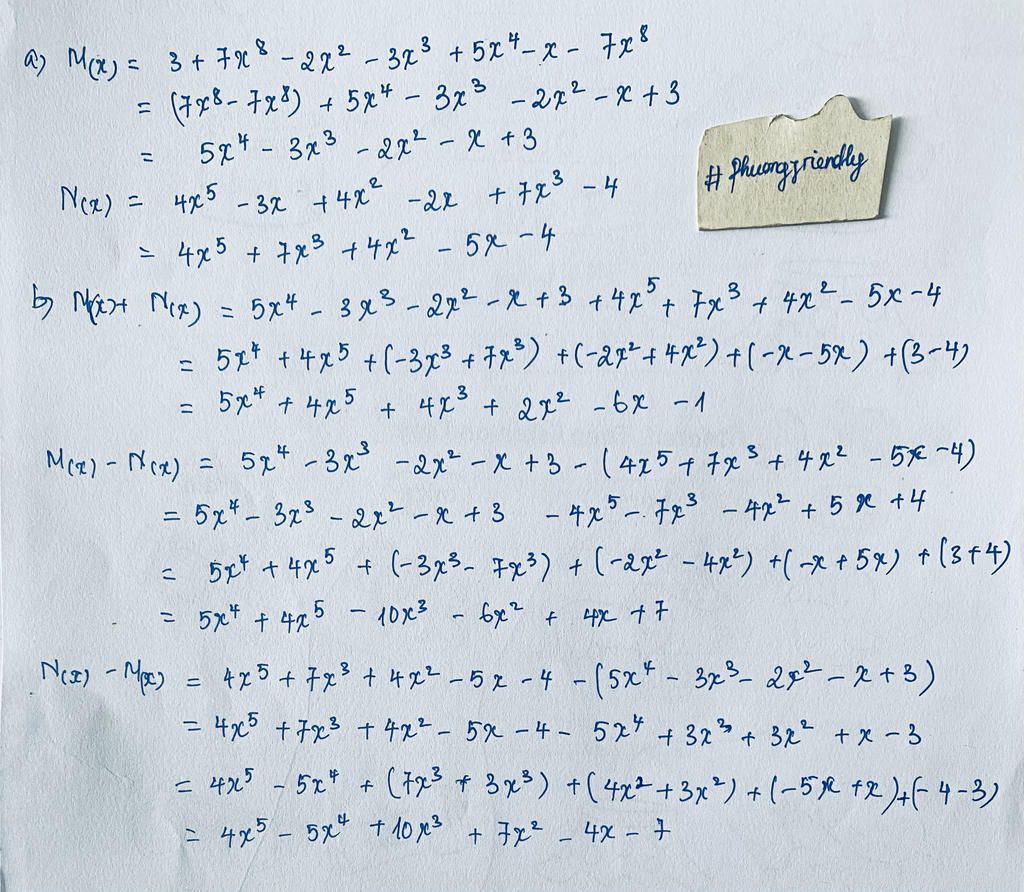 a) M(x) = 3 + 7x⁸ - 2x² - 3x³ + 5x⁴ - x - 7x⁸
= (7x⁸ - 7x⁸) + 5x⁴ - 3x³ - 2x² - x + 3
= 5x⁴ - 3x³ - 2x² - x + 3
# Phuongfriendly
N(x) = 4x⁵ - 3x + 4x² - 2x + 7x³ - 4
= 4x⁵ + 7x³ + 4x² - 5x - 4
b) M(x) + N(x) = 5x⁴ - 3x³ - 2x² - x + 3 + 4x⁵ + 7x³ + 4x² - 5x - 4
= 5x⁴ + 4x⁵ + (-3x³ + 7x³) + (-2x² + 4x²) + (-x - 5x) + (3 - 4)
= 5x⁴ + 4x⁵ + 4x³ + 2x² - 6x - 1
M(x) - N(x) = 5x⁴ - 3x³ - 2x² - x + 3 - (4x⁵ + 7x³ + 4x² - 5x - 4)
= 5x⁴ - 3x³ - 2x² - x + 3 - 4x⁵ - 7x³ - 4x² + 5x + 4
= 5x⁴ + 4x⁵ + (-3x³ - 7x³) + (-2x² - 4x²) + (-x + 5x) + (3 + 4)
= 5x⁴ + 4x⁵ - 10x³ - 6x² + 4x + 7
N(x) - M(x) = 4x⁵ + 7x³ + 4x² - 5x - 4 - (5x⁴ - 3x³ - 2x² - x + 3)
= 4x⁵ + 7x³ + 4x² - 5x - 4 - 5x⁴ + 3x³ + 3x² + x - 3
= 4x⁵ - 5x⁴ + (7x³ + 3x³) + (4x² + 3x²) + (-5x + x) + (-4 - 3)
= 4x⁵ - 5x⁴ + 10x³ + 7x² - 4x - 7